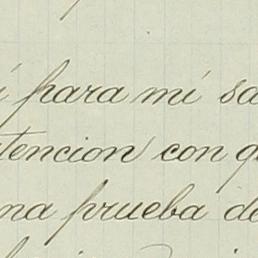 para mí sa
tencion con q
na prueba de